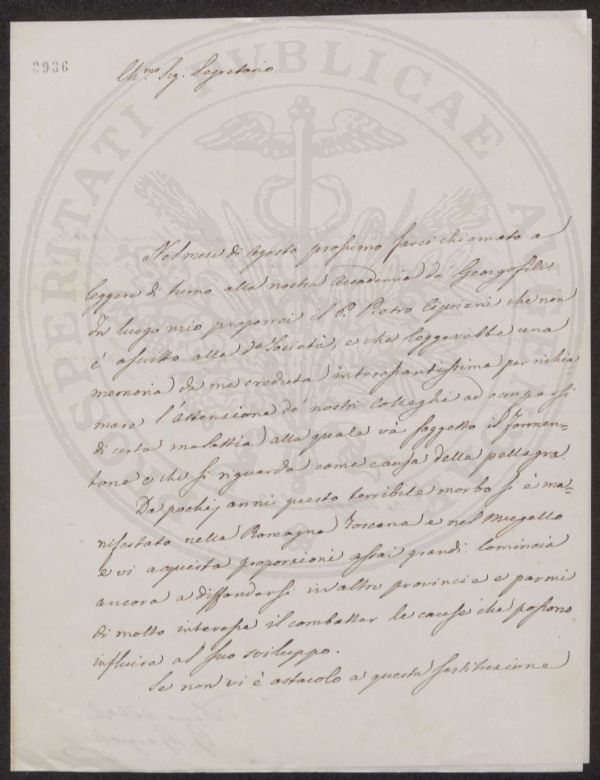 2936
Ch.mo Sig. Segretario
Nel mese di Agosto prossimo sarei chiamato a
leggere di turno alla nostra Accademia de Georgofili
In luogo mio proporrei il P. Pietro Cipriani che non
è ascritto alla da Società, e che leggerebbe una
memoria da me creduta interessantissima per richia-
mare l'attenzione de' nostri Colleghi ad occuparsi
di certa malattia alla quale và soggetto il formen-
tone e che si riguarda come causa della pellagra.
Da pochi anni questo terribile morbo si è ma-
nifestato nella Romagna Toscana e nel Mugello
e vi acquista proporzioni assai grandi. Comincia
ancora a diffondersi in altre provincie e parmi
di molto interesse il combatter le cause che possono
influire al suo sviluppo.
Se non vi è ostacolo a questa sostituzione
PROSPERITATI PUBLICAE AUGENDAE